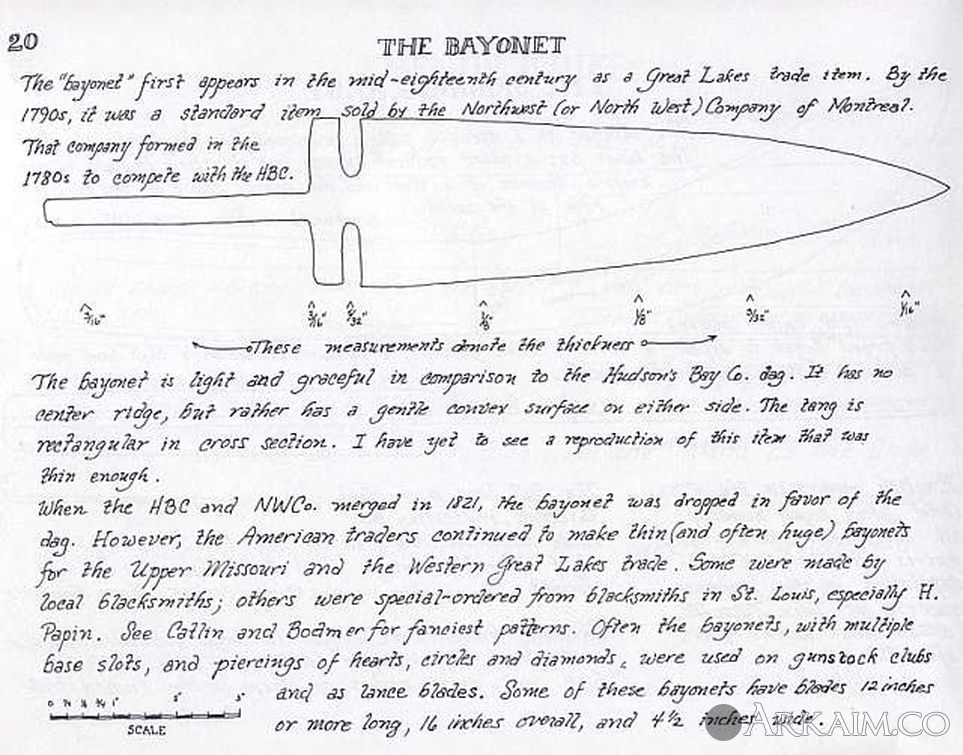 20
THE BAYONET
The "bayonet" first appears in the mid-eighteenth century as a Great Lakes trade item. By the
1790s, it was a standard item sold by the Northwest (or North West) Company of Montreal.
That company formed in the
1780s to compete with the HBC.
3/16" 3/16" 5/32" 1/8" 1/8" 3/32" 1/16"
These measurements denote the thickness
The bayonet is light and graceful in comparison to the Hudson's Bay Co. dag. It has no
center ridge, but rather has a gentle convex surface on either side. The tang is
rectangular in cross section. I have yet to see a reproduction of this item that was
thin enough.
When the HBC and NWCo. merged in 1821, the bayonet was dropped in favor of the
dag. However, the American traders continued to make thin (and often huge) bayonets
for the Upper Missouri and the Western Great Lakes trade. Some were made by
local blacksmiths; others were special-ordered from blacksmiths in St. Louis, especially H.
Papin. See Catlin and Bodmer for fanciest patterns. Often the bayonets, with multiple
base slots, and piercings of hearts, circles and diamonds, were used on gunstock clubs
and as lance blades. Some of these bayonets have blades 12 inches
or more long, 16 inches overall, and 4 1/2 inches wide.
0 1/4 1/2 3/4 1"
SCALE
ARKAIM.CO